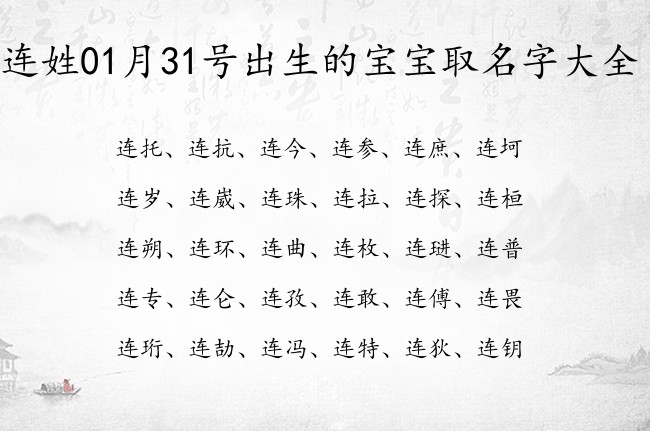 连姓01月31号出生的宝宝取名字大全
连托、连抗、连今、连参、连庶、连坷
连岁、连崴、连珠、连拉、连探、连桓
连朔、连环、连曲、连枚、连琎、连普
连专、连仑、连孜、连敢、连傅、连畏
连珩、连劼、连冯、连特、连狄、连钥